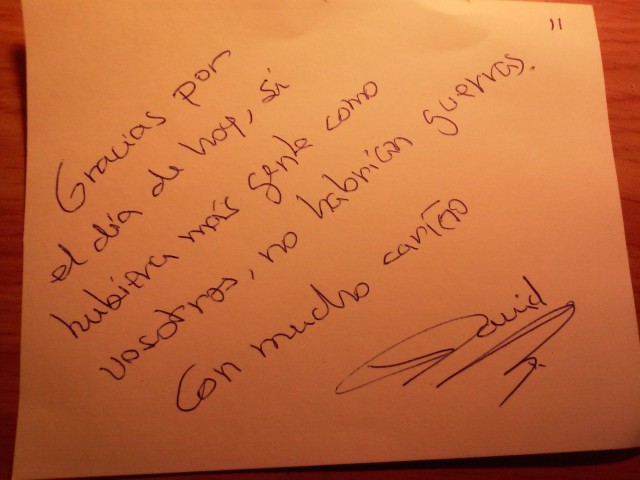 11
Gracias por
el día de hoy, si
hubiera más gente como
vosotros, no habrían guerras.
Con mucho cariño
David